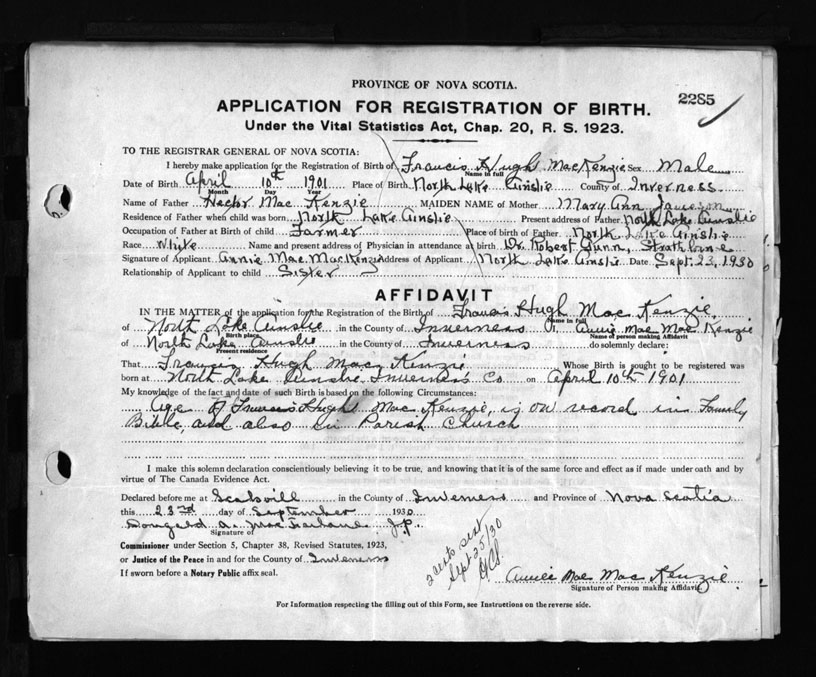 PROVINCE OF NOVA SCOTIA.
2285
APPLICATION FOR REGISTRATION OF BIRTH.
Under the Vital Statistics Act, Chap. 20, R. S. 1923.
TO THE REGISTRAR GENERAL OF NOVA SCOTIA:
I hereby make application for the Registration of Birth of Francis Hugh MacKenzie Sex Male
Name in full
Date of Birth April 10th 1901 Place of Birth North Lake Ainslie County of Inverness
Month Day Year
Name of Father Hector Mac Kenzie MAIDEN NAME of Mother Mary Ann Jameson
Residence of Father when child was born North Lake Ainslie Present address of Father North Lake Ainslie
Occupation of Father at Birth of child Farmer Place of birth of Father North Lake Ainslie
Race White Name and present address of Physician in attendance at birth Dr. Robert Gunn, Strathlorne
Signature of Applicant Annie Mae MacKenzie Address of Applicant North Lake Ainslie Date Sept. 23, 1930
Relationship of Applicant to child Sister
AFFIDAVIT
IN THE MATTER of the application for the Registration of the Birth of Francis Hugh Mac Kenzie
Name in full
of North Lake Ainslie in the County of Inverness I, Annie Mae Mac Kenzie
Birth place Name of person making Affidavit
of North Lake Ainslie in the County of Inverness do solemnly declare:
Present residence
That Francis Hugh Mac Kenzie Whose Birth is sought to be registered was
born at North Lake Ainslie Inverness Co on April 10th 1901
My knowledge of the fact and date of such Birth is based on the following Circumstances:
Age of Francis Hugh Mac Kenzie, is on record in Family
Bible, and also in Parish Church
I make this solemn declaration conscientiously believing it to be true, and knowing that it is of the same force and effect as if made under oath and by
virtue of The Canada Evidence Act.
Declared before me at in the County of Inverness and Province of Nova Scotia
this 23rd day of September 1930
Dougald A. MacFarlane J.P.
Signature of
Commissioner under Section 5, Chapter 38, Revised Statutes, 1923,
or Justice of the Peace in and for the County of Inverness
If sworn before a Notary Public affix seal.
sent
Sept 25/30
Annie Mae Mac Kenzie
Signature of Person making Affidavit
For Information respecting the filling out of this Form, see Instructions on the reverse side.